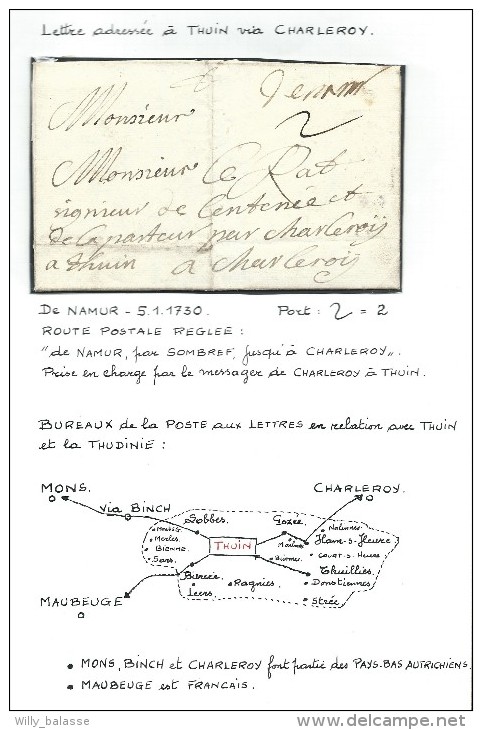 Lettre adressée à THUIN via CHARLEROY.
Monsieur
Monsieur
signieur de Centenée et
par Charleroÿ
a thuin a Charleroij
DE NAMUR - 5.1.1730. Port : 2 = 2
ROUTE POSTALE REGLEE :
"de NAMUR, par SOMBREF, jusqu'à CHARLEROY".
Prise en charge par le messager de CHARLEROY à THUIN.
BUREAUX de la POSTE aux LETTRES en relation avec THUIN
et la THUDINIE :
MONS.
CHARLEROY.
via BINCH
Lobbes.
Gozée.
Nalinnes.
Merbes.
Bienne.
Sars.
THUIN
Marbaix.
Ham-s-Heure
Court-s-Heure
Biesmes.
Thuillies.
Donstiennes.
Ragnies.
Leers.
Strée.
MAUBEUGE
• MONS, BINCH et CHARLEROY font partie des PAYS-BAS AUTRICHIENS.
• MAUBEUGE est FRANCAIS.
Willy_balasse
delcampe.net